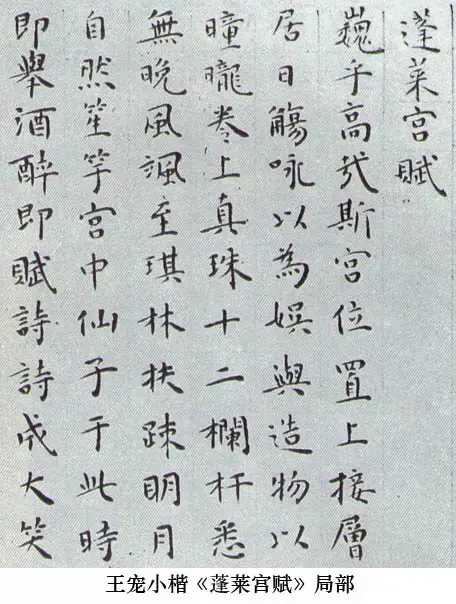 蓬莱宫賦
巍乎高哉斯宫位置上接層
居日觴咏以為娛與造物以
曈曨卷上真珠十二欄杆悉
無晚風颯至琪林扶踈明月
自然笙竽宫中仙子于此時
即舉酒醉即賦詩詩成大笑
王宠小楷《蓬莱宫赋》局部